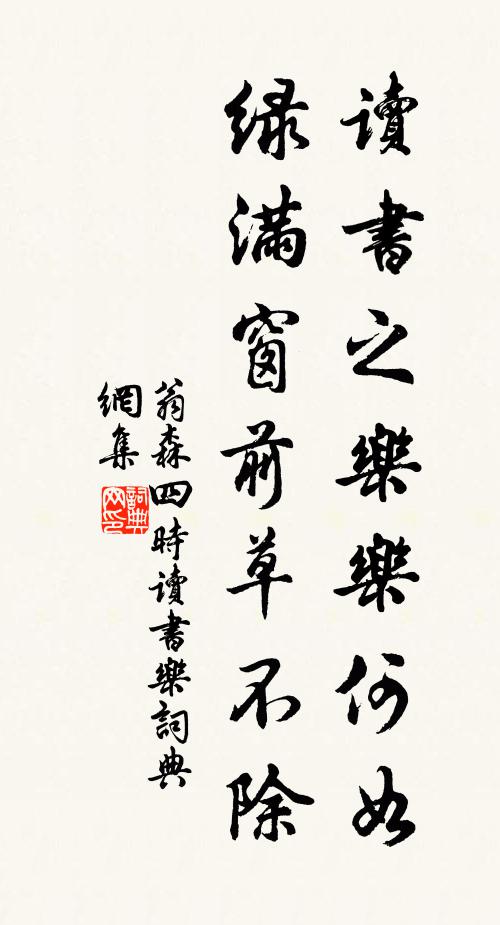 讀書之樂樂何如
綠滿窗前草不除
翁森四時讀書樂詞典
網集
詞典网印